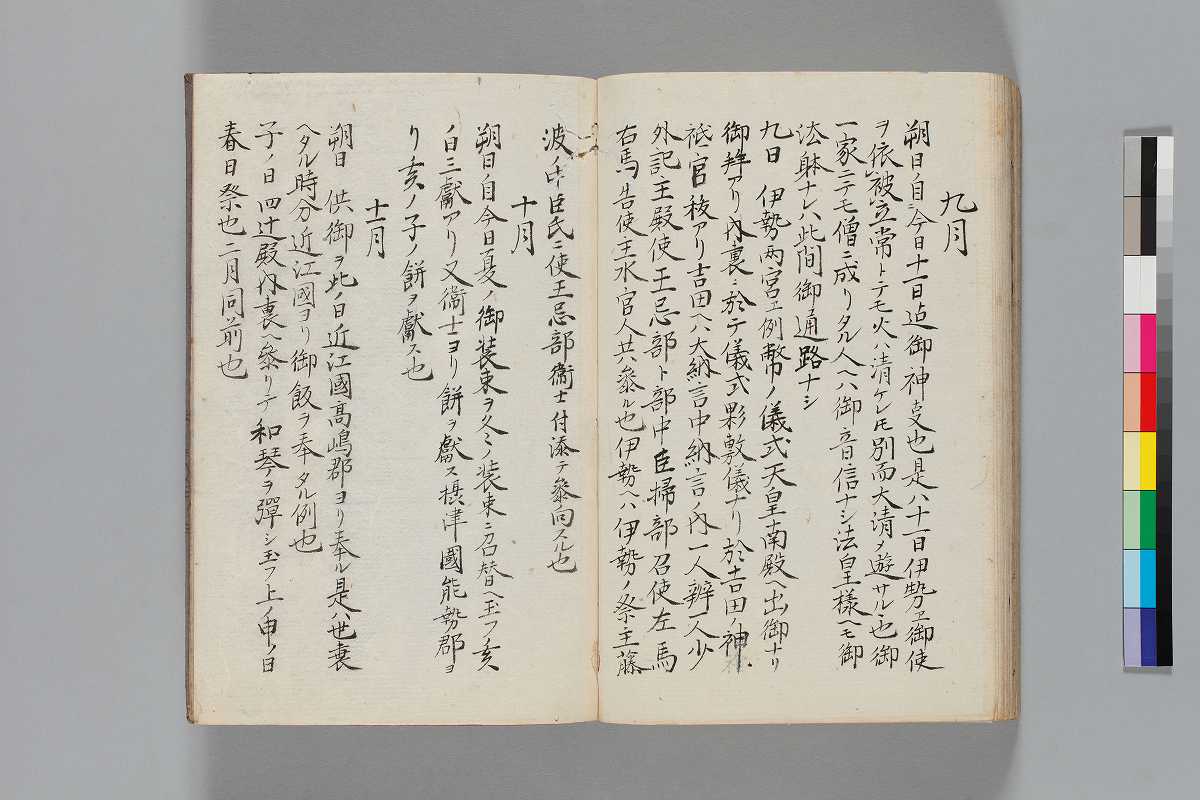 九月
朔日ノ自今日十一日迠御神支也是ハ十一日伊勢ヱ御使
ヲ依被立常トテモ火ハ清ケレ𪜈別而大清メ遊サル也御
一家ニテモ僧ニ成リタル人ヘハ御音信ナシ法皇様ヘモ御
法躰ナレハ此間御通路ナシ
九日 伊勢両宮ヱ例幣ノ儀式天皇南殿ヘ出御ナリ
御拜アリ内裏ニ於テ儀式夥敷儀ナリ於吉田ノ神
祗官秡アリ吉田ヘハ大納言中納言ノ内一人辨一人少
外記主殿使王忌部ト部中臣掃部召使左馬
右馬告使主水官人共ハ參ル也伊勢ヘハ伊勢ノ祭主藤
波ノ中臣氏ニ使王忌部衞士付添テ參向スル也
十月
朔日自今日夏ノ御装束ヲ冬ミノ装束ニ召替ヘ玉フ亥
ノ日三獻アリ又衞士ヨリ餅ヲ獻ス摂津國能勢郡ヨ
リ亥ノ子ノ餅ヲ獻ス也
十一月
朔日 供御ヲ此ノ日近江國高嶋郡ヨリ奉ル是ハ世衰
ヘタル時分近江國ヨリ御飯ヲ奉タル例也
子ノ日四辻殿内裏ヘ參リテ和琴ヲ彈シ玉フ上ノ申ノ日
春日祭也二月同前也